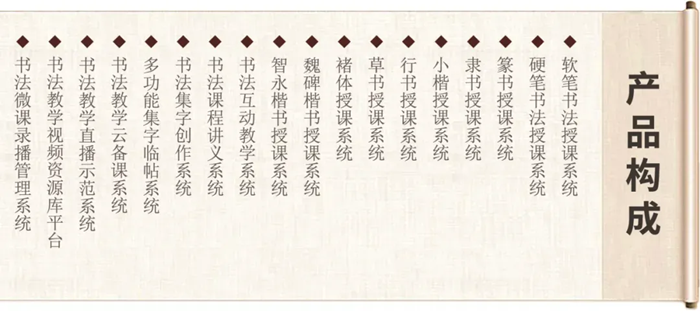 产品构成
软笔书法授课系统
硬笔书法授课系统
篆书授课系统
隶书授课系统
小楷授课系统
行书授课系统
草书授课系统
褚体授课系统
魏碑楷书授课系统
智永楷书授课系统
书法互动教学系统
书法课程讲义系统
书法集字创作系统
多功能集字临帖系统
书法教学云备课系统
书法教学直播示范系统
书法教学视频资源库平台
书法微课录播管理系统